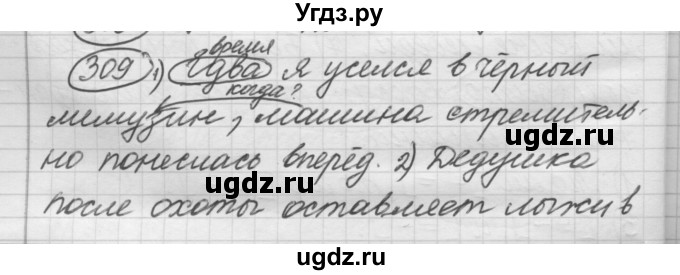 Угдз.ру
время
309 1) Едва я уселся в чёрный
когда?
лимузин, машина стремитель-
но понеслась вперёд. 2) Дедушка
ugdz.ru ugdz.ru
после охоты оставляет лыжи в
ugdz.ru
ugdz.ru